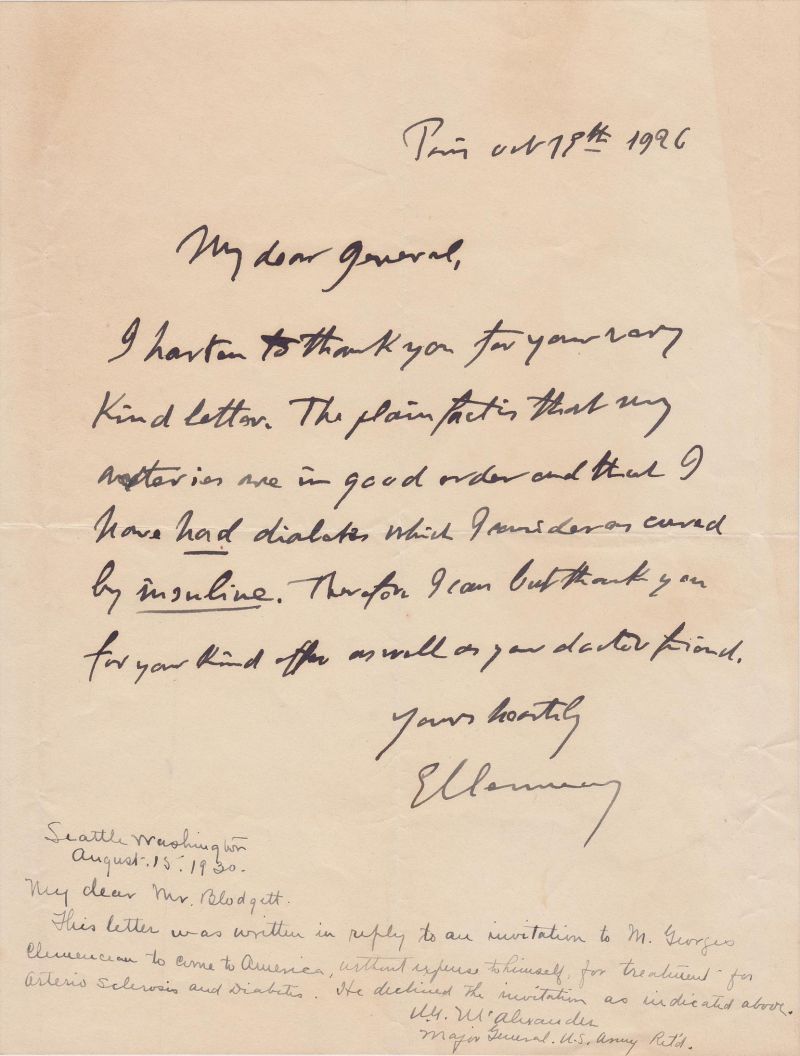 Paris oct 19th 1926
My dear General,
I hasten to thank you for your very
Kind letter. The plain fact is that my
arteries are in good order and that I
have had diabetes which I consider as cured
by insuline. Therefore I can but thank you
for your kind offer as well as your doctor friend.
Yours heartily
GClemenceau
Seattle Washington
August. 15. 1930.
My dear Mr. Blodgett.
This letter was written in reply to an invitation to M. Georges
Clemenceau to come to America, without expense to himself, for treatment for
Arterio Sclerosis and Diabetes. He declined the invitation as indicated above.
U.G. McAlexander
Major General. U.S. Army Ret'd.